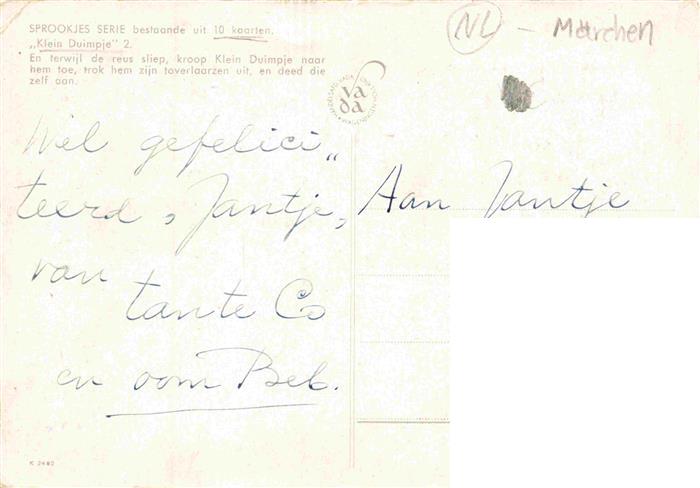 SPROOKJES SERIE bestaande uit 10 kaarten.
„Klein Duimpje" 2.
En terwijl de reus sliep, kroop Klein Duimpje naar
hem toe, trok hem zijn toverlaarzen uit, en deed die
zelf aan.
NL - Märchen
va
da
Wel gefelici„
teerd, Jantje,
van
tante Co
en oom Beb.
Aan Jantje
K 2482